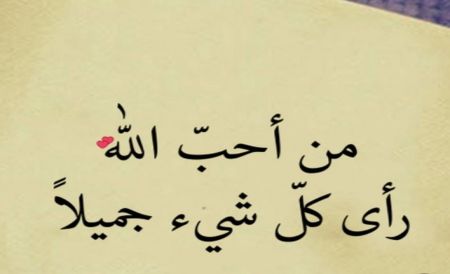 من أحبّ اللّٰه
رأى كلّ شيء جميلاً